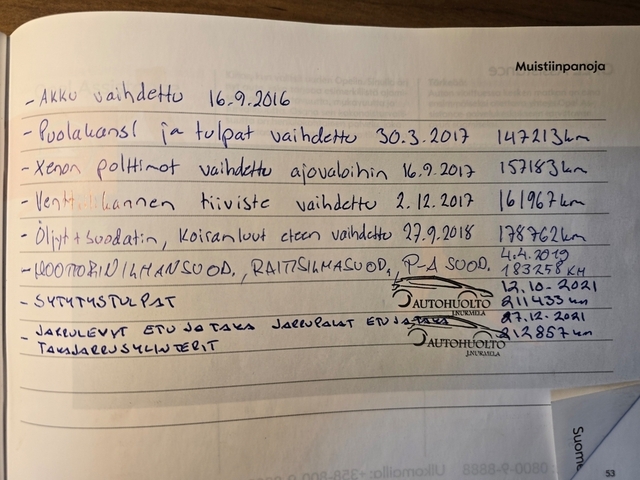 Muistiinpanoja
- AKKU vaihdettu 16.9.2016
- Puolakansi ja tulpat vaihdettu 30.3.2017 147213km
- Xenon polttimot vaihdettu ajovaloihin 16.9.2017 157183km
- Venttiilikannen tiiviste vaihdettu 2.12.2017 161967km
- Öljyt + suodatin, Koiranluut eteen vaihdettu 27.9.2018 178762km
- MOOTTORINILMANSUOD., RAITISILMASUOD., P-A SUOD. 4.4.2019 183258 KM
- SYTYTYSTULPAT 12.10.2021 211433 km
AUTOHUOLTO
J.NURMELA
- JARRULEVYT ETU JA TAKA JARRUPALAT ETU JA TAKA 27.12.2021
TAKAJARRUSYLINTERIT 212857km
AUTOHUOLTO
J.NURMELA
53